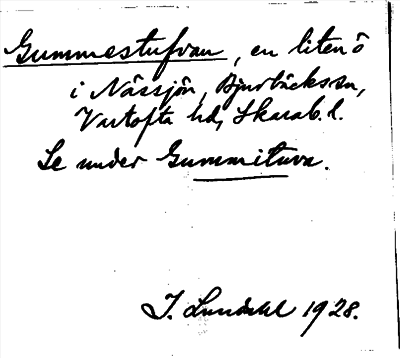 Gummestufvan, en liten ö
i Nässjön, Djurbäckssn,
Vartofta hd, Skarab. l.
Se under Gummituva.
I. Lundahl 1928.